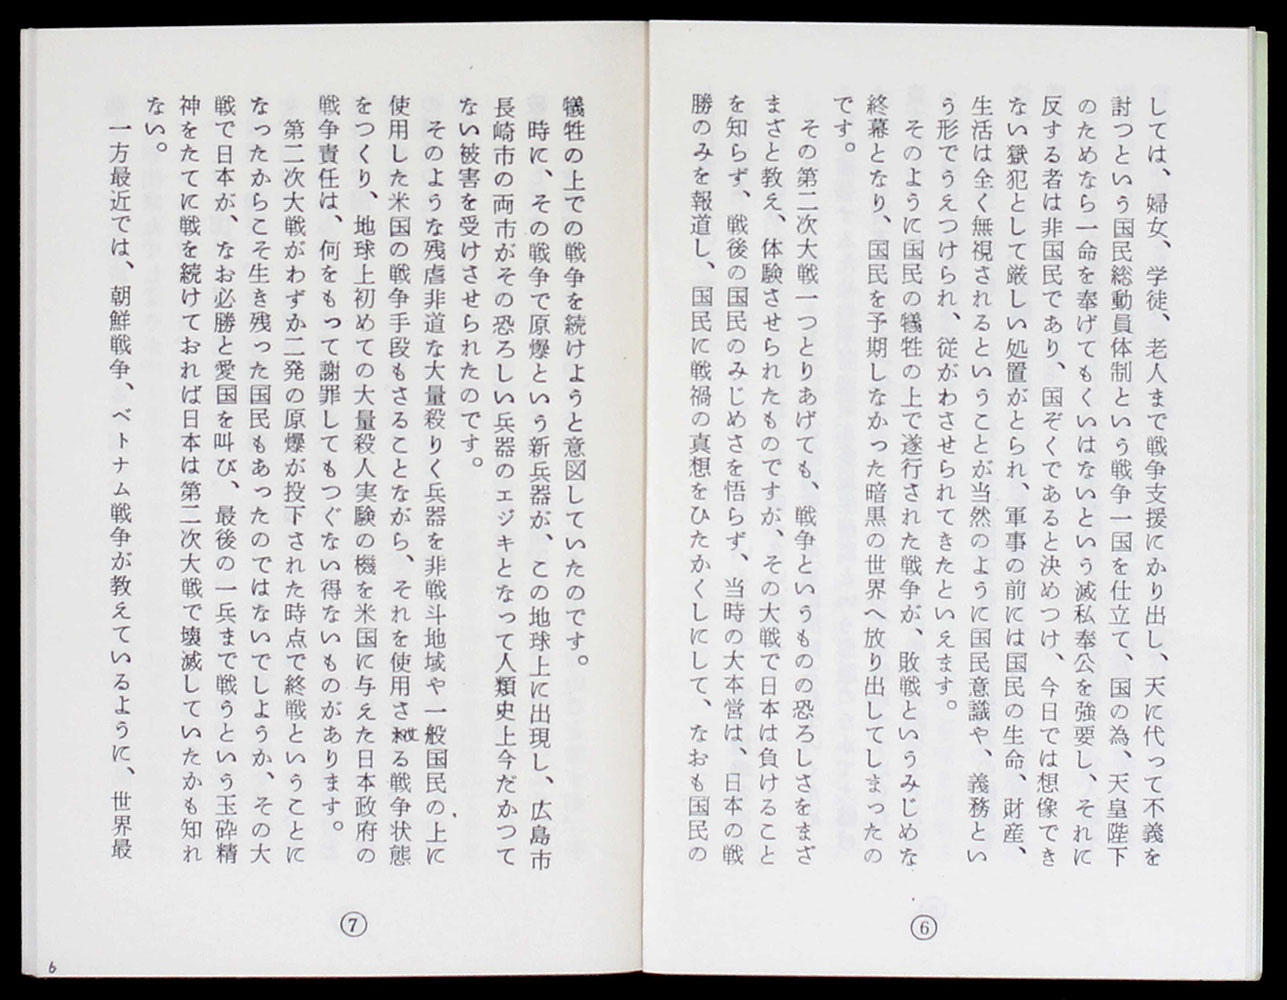 しては、婦女、学徒、老人まで戦争支援にかり出し、天に代って不義を
討つという国民総動員体制という戦争一国を仕立て、国の為、天皇陛下
のためなら一命を奉げてもくいはないという滅私奉公を強要し、それに
反する者は非国民であり、国ぞくであると決めつけ、今日では想像でき
ない獄犯として厳しい処置がとられ、軍事の前には国民の生命、財産、
生活は全く無視されるということが当然のように国民意識や、義務とい
う形でうえつけられ、従がわさせられてきたといえます。
そのように国民の犠牲の上で遂行された戦争が、敗戦というみじめな
終幕となり、国民を予期しなかった暗黒の世界へ放り出してしまったの
です。
その第二次大戦一つとりあげても、戦争というものの恐ろしさをまざ
まざと教え、体験させられたものですが、その大戦で日本は負けること
を知らず、戦後の国民のみじめさを悟らず、当時の大本営は、日本の戦
勝のみを報道し、国民に戦禍の真想をひたかくしにして、なおも国民の
⑥
犠牲の上での戦争を続けようと意図していたのです。
時に、その戦争で原爆という新兵器が、この地球上に出現し、広島市
長崎市の両市がその恐ろしい兵器のエジキとなって人類史上今だかつて
ない被害を受けさせられたのです。
そのような残虐非道な大量殺りく兵器を非戦斗地域や一般国民の上に
使用した米国の戦争手段もさることながら、それを使用させる戦争状態
をつくり、地球上初めての大量殺人実験の機を米国に与えた日本政府の
戦争責任は、何をもって謝罪してもつぐない得ないものがあります。
第二次大戦がわずか二発の原爆が投下された時点で終戦ということに
なったからこそ生き残った国民もあったのではないでしようか、その大
戦で日本が、なお必勝と愛国を叫び、最後の一兵まで戦うという玉砕精
神をたてに戦を続けておれば日本は第二次大戦で壊滅していたかも知れ
ない。
一方最近では、朝鮮戦争、ベトナム戦争が教えているように、世界最
⑦
6